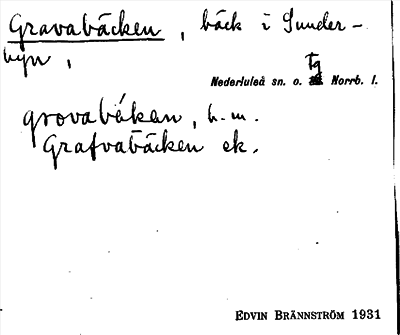 Gravabäcken, bäck i Sunder-
byn,
tg
Nederluleå sn. o. Norrb. l.
grovabä́kan, h. m.
Grafvabäcken ek.
EDVIN BRÄNNSTRÖM 1931